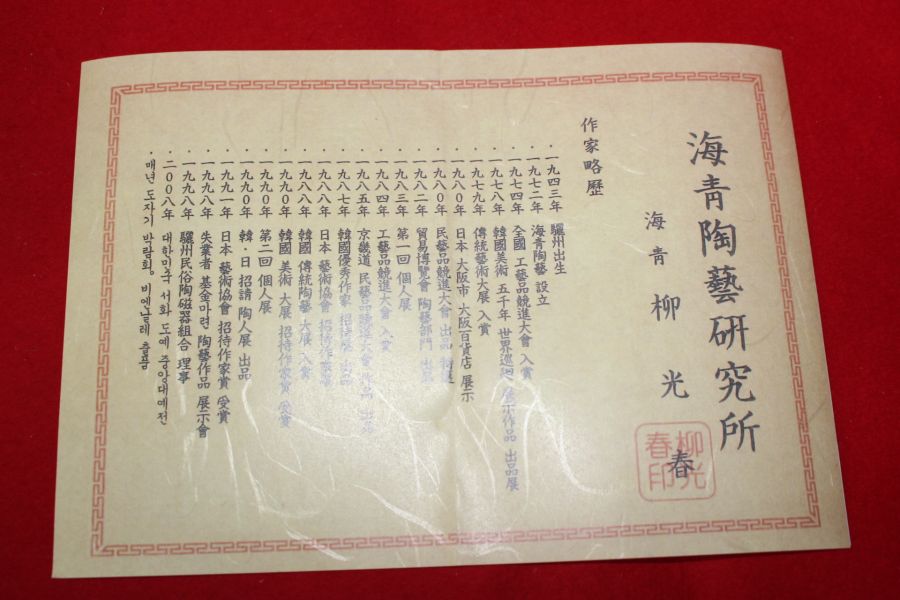 海靑陶藝硏究所
海靑 柳光春
柳光春印
作家略歷
・一九四三年 驪州出生
・一九七二年 海靑陶藝 設立
・一九七四年 全國 工藝品競進大會 入賞
・一九七八年 韓國美術 五千年 世界巡廻 展示作品 出品展
・一九七九年 傳統藝術大展 入賞
・一九八〇年 日本 大阪市 大阪百貨店 展示
・一九八〇年 民藝品競進大會 出品
・一九八二年 貿易博覽會 陶藝部門 出品
・一九八三年 第一回 個人展
・一九八四年 工藝品競進大會 入賞
・一九八五年 京畿道 民藝品競進大會 出品
・一九八七年 韓國優秀作家 招待展 出品
・一九八八年 日本 藝術協會 招待作家
・一九八八年 韓國 傳統陶藝 大展 入賞
・一九九〇年 韓國 美術 大展 招待作家賞 受賞
・一九九〇年 第二回 個人展
・一九九〇年 韓・日 招請 陶人展 出品
・一九九一年 日本 藝術協會 招待作家賞 受賞
・一九九八年 失業者 基金마련 陶藝作品 展示會
・一九九八年 驪州民俗陶磁器組合 理事
・二〇〇八年 대한민국 서화 도예 중앙대예전
・매년 도자기 박람회. 비엔날레 출품